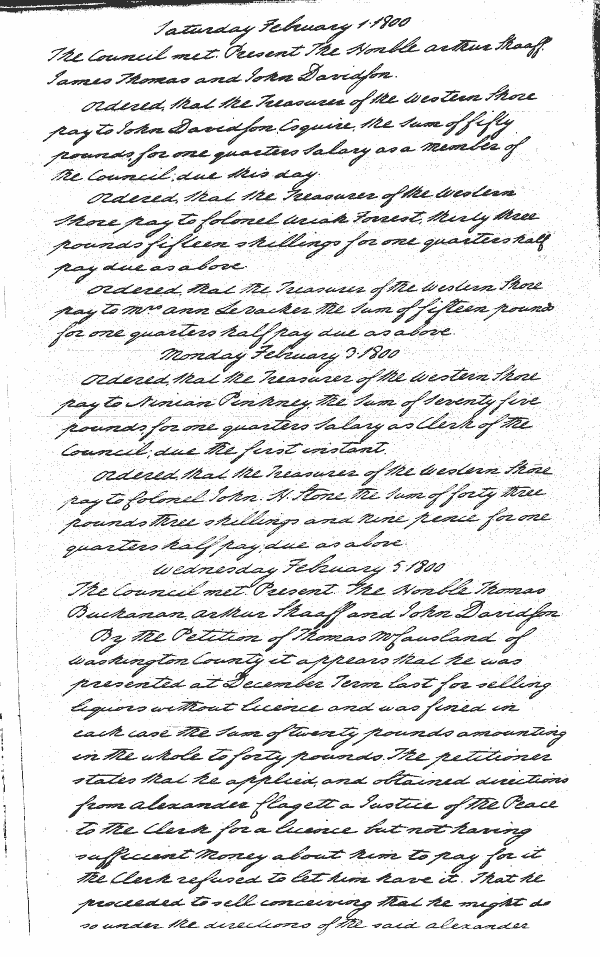 Saturday February 1. 1800
The Council met. Present The Honble Arthur Shaaff
James Thomas and John Davidson.
Ordered, that the Treasurer of the Western Shore
pay to John Davidson, Esquire, the sum of fifty
pounds for one quarters salary as a member of
the Council, due this day.
Ordered, that the Treasurer of the Western
Shore pay to Colonel Uriah Forrest, thirty three
pounds fifteen shillings for one quarters half
pay due as above.
Ordered, that the Treasurer of the Western Shore
pay to Mrs Ann Levacher the sum of fifteen pounds
for one quarters half pay due as above.
Monday February 3. 1800
Ordered, that the Treasurer of the Western Shore
pay to Ninian Pinkney, the sum of seventy five
pounds, for one quarters salary as Clerk of the
Council, due the first instant.
Ordered, that the Treasurer of the Western Shore
pay to Colonel John. H. Stone the sum of forty three
pounds three shillings and nine pence for one
quarters half pay, due as above
Wednesday February 5. 1800
The Council met. Present. The Honble Thomas
Buchanan, Arthur Shaaff and John Davidson
By the Petition of Thomas McCausland of
Washington County it appears that he was
presented at December Term last for selling
liquors without licence and was fined in
each case the sum of twenty pounds amounting
in the whole to forty pounds. The petitioner
states that he applied, and obtained directions
from Alexander Clagett a Justice of the Peace
to the Clerk for a licence but not having
sufficient money about him to pay for it
the Clerk refused to let him have it. That he
proceeded to sell conceiving that he might do
so under the directions of the said Alexander